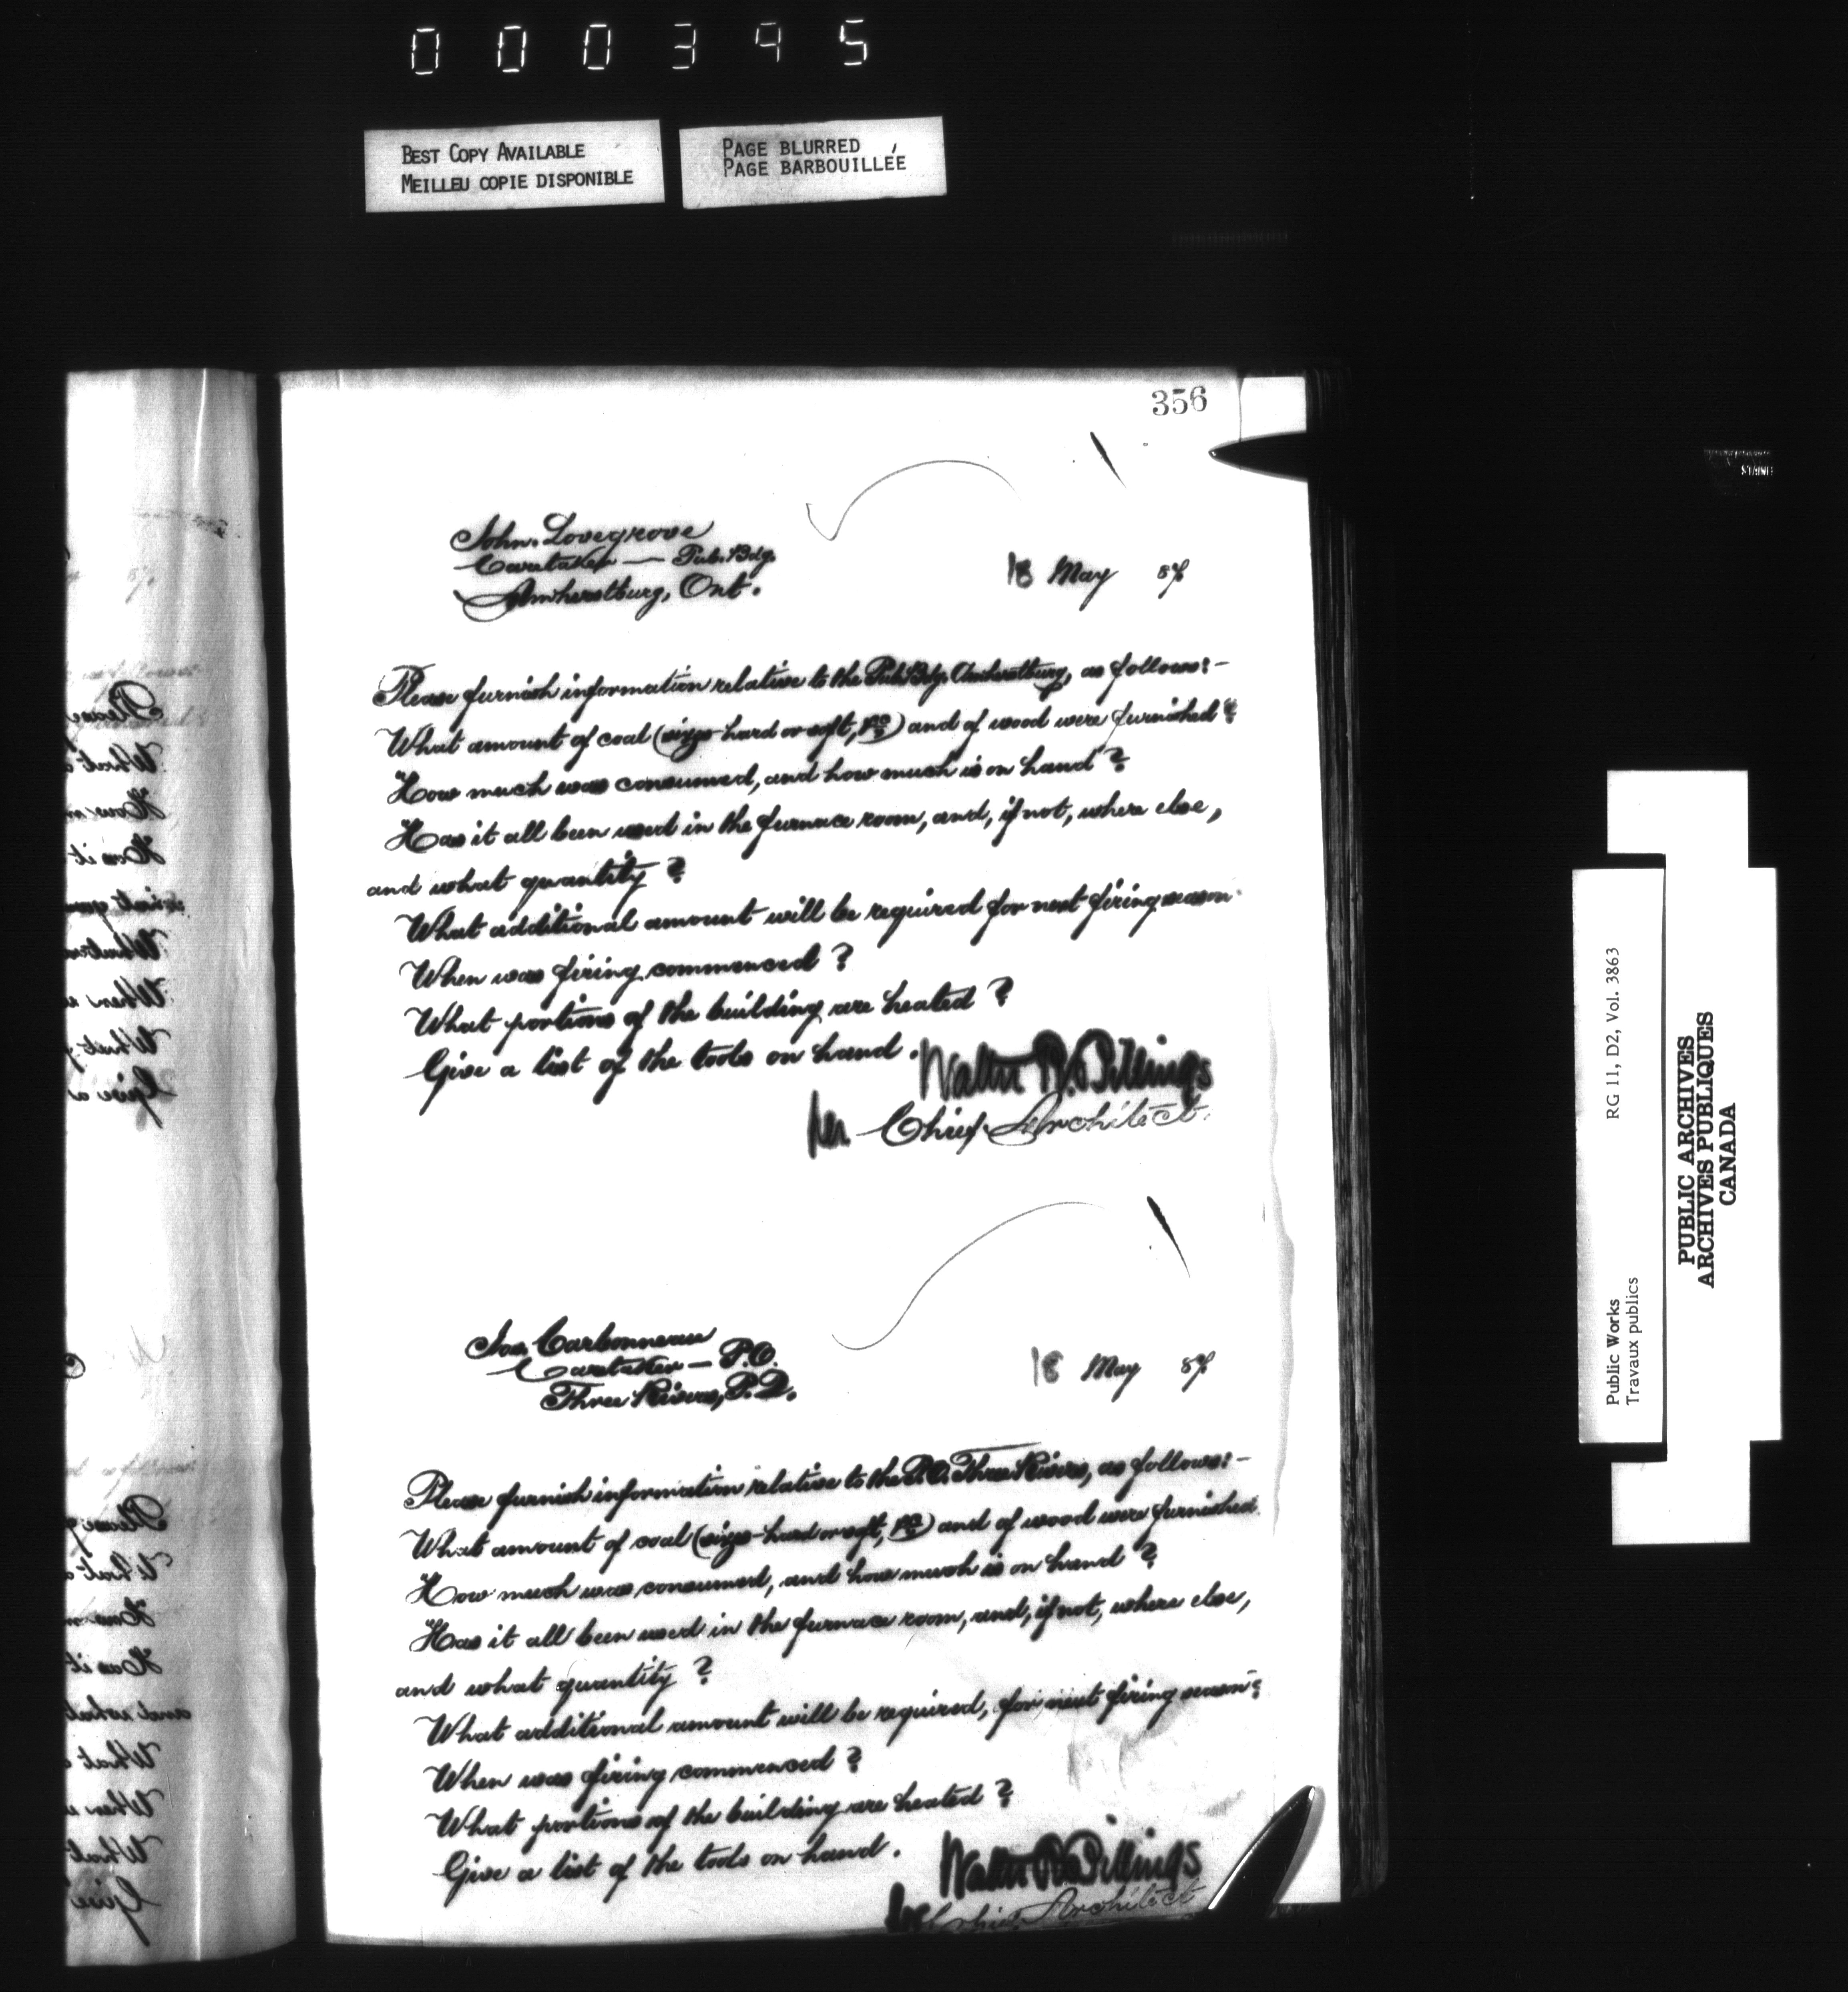 000395
BEST COPY AVAILABLE
MEILLEU COPIE DISPONIBLE
PAGE BLURRED
PAGE BARBOUILLÉE
356
John. Lovegrove
Caretaker — Pub. Bdg.
Amherstburg, Ont.
18 May 87
Please furnish information relative to the Pub. Bdg. Amherstburg, as follows:-
What amount of coal (size hard or soft, ) and of wood were furnished?
How much was consumed, and how much is on hand?
Has it all been used in the furnace room, and, if not, where else,
and what quantity?
What additional amount will be required for next firing season
When was firing commenced?
What portions of the building are heated?
Give a list of the tools on hand.
Walter R. Billings
per Chief Architect.
Jos. Carbonneau
Caretaker — P.O.
Three Rivers, P.Q.
18 May 87
Please furnish information relative to the P.O. Three Rivers, as follows:-
What amount of coal (size hard or soft, ) and of wood were furnished
How much was consumed, and how much is on hand?
Has it all been used in the furnace room, and, if not, where else,
and what quantity?
What additional amount will be required, for next firing season?
When was firing commenced?
What portions of the building are heated?
Give a list of the tools on hand.
Walter R. Billings
per Chief Architect
Public Works
Travaux publics
RG 11, D2, Vol. 3863
PUBLIC ARCHIVES
ARCHIVES PUBLIQUES
CANADA